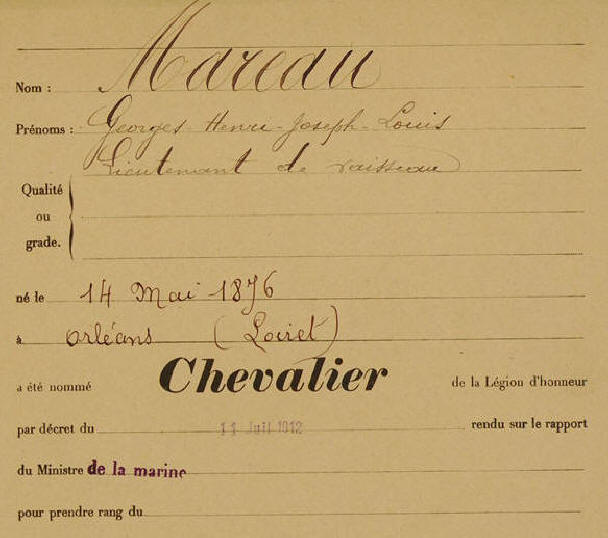 Nom : Mareau
Prénoms : Georges-Henri-Joseph-Louis
Lieutenant de vaisseau
Qualité
ou
grade.
né le 14 Mai 1876
à Orléans (Loiret)
a été nommé Chevalier de la Légion d'honneur
par décret du 11 Juil 1912 rendu sur le rapport
du Ministre de la marine
pour prendre rang du